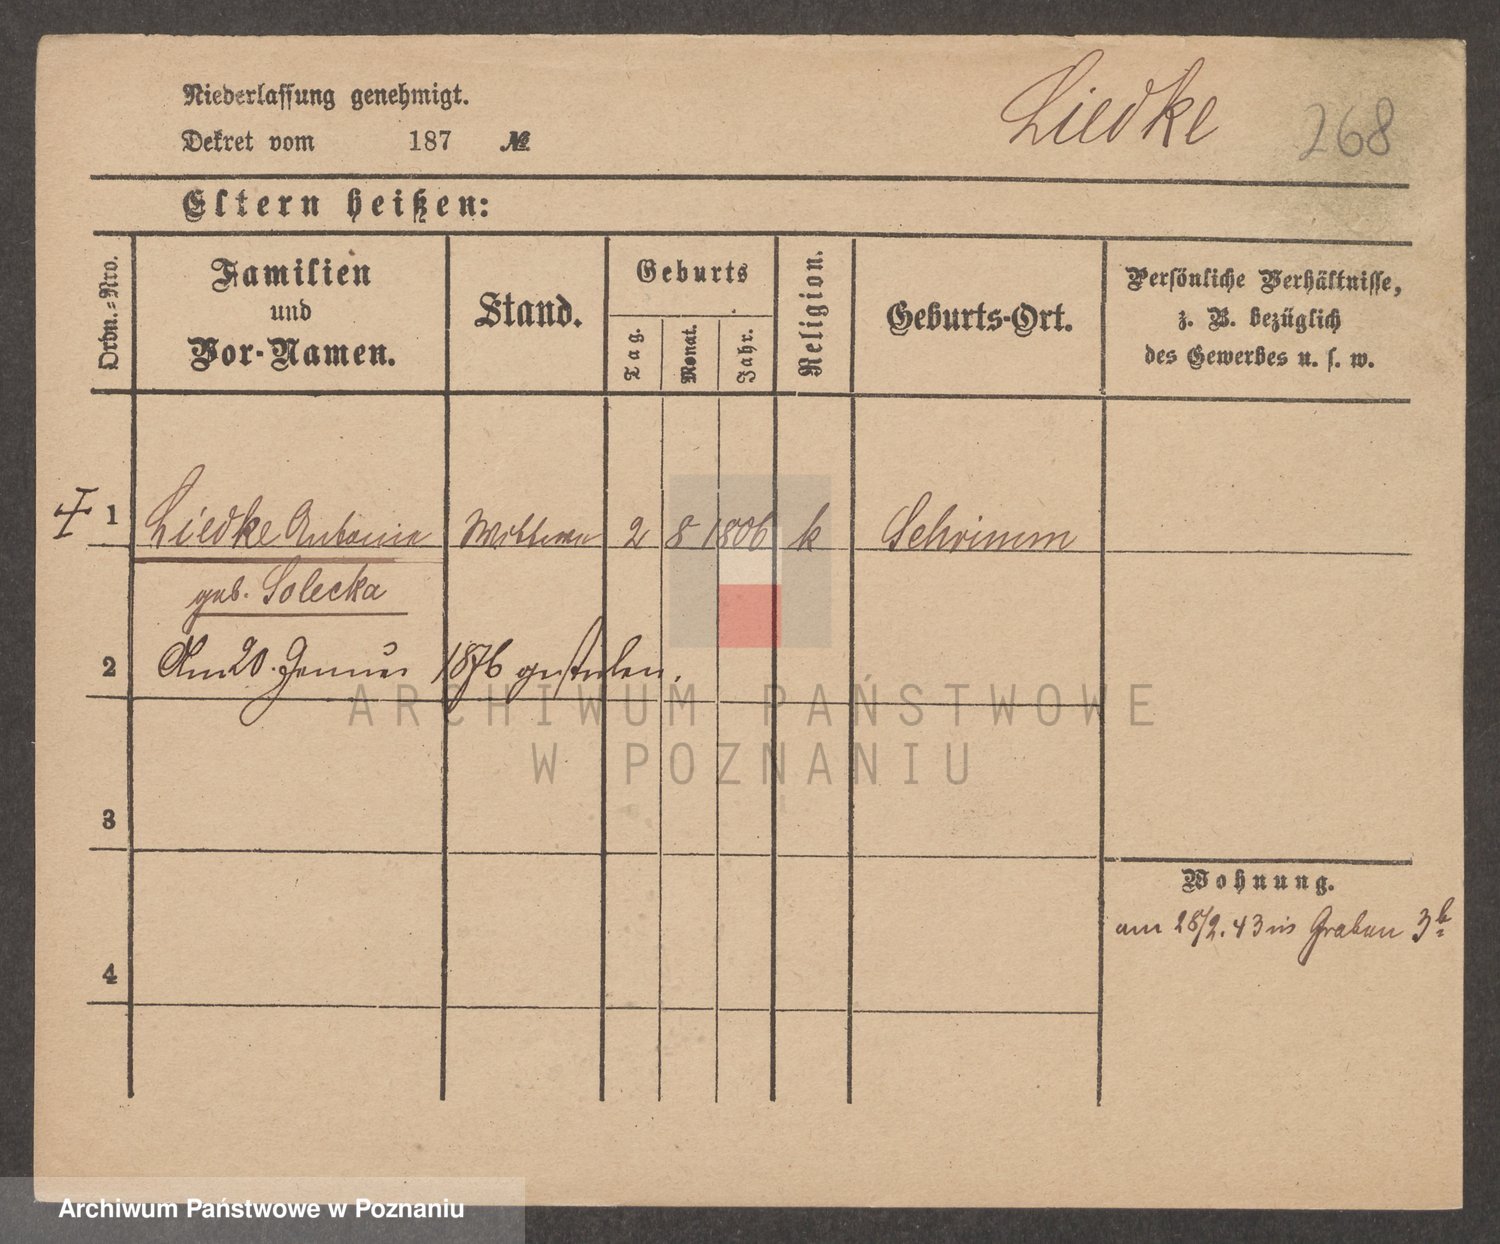 Niederlassung genehmigt.
Dekret vom 187 №
Liedke 268
Eltern heißen:
Ordn.-Nro.
Familien
und
Vor-Namen.
Stand.
Geburts
Tag.
Monat.
Jahr.
Religion.
Geburts-Ort.
Persönliche Verhältnisse,
z. B. bezüglich
des Gewerbes u. s. w.
1 Liedke Antonie Wittwe 2 8 1806 k Schrimm
geb. Solecka
2 Am 20. Januar 1876 gestorben.
ARCHIWUM PAŃSTWOWE
W POZNANIU
3
Wohnung.
am 28/2. 43 in Graben 3b
4
Archiwum Państwowe w Poznaniu